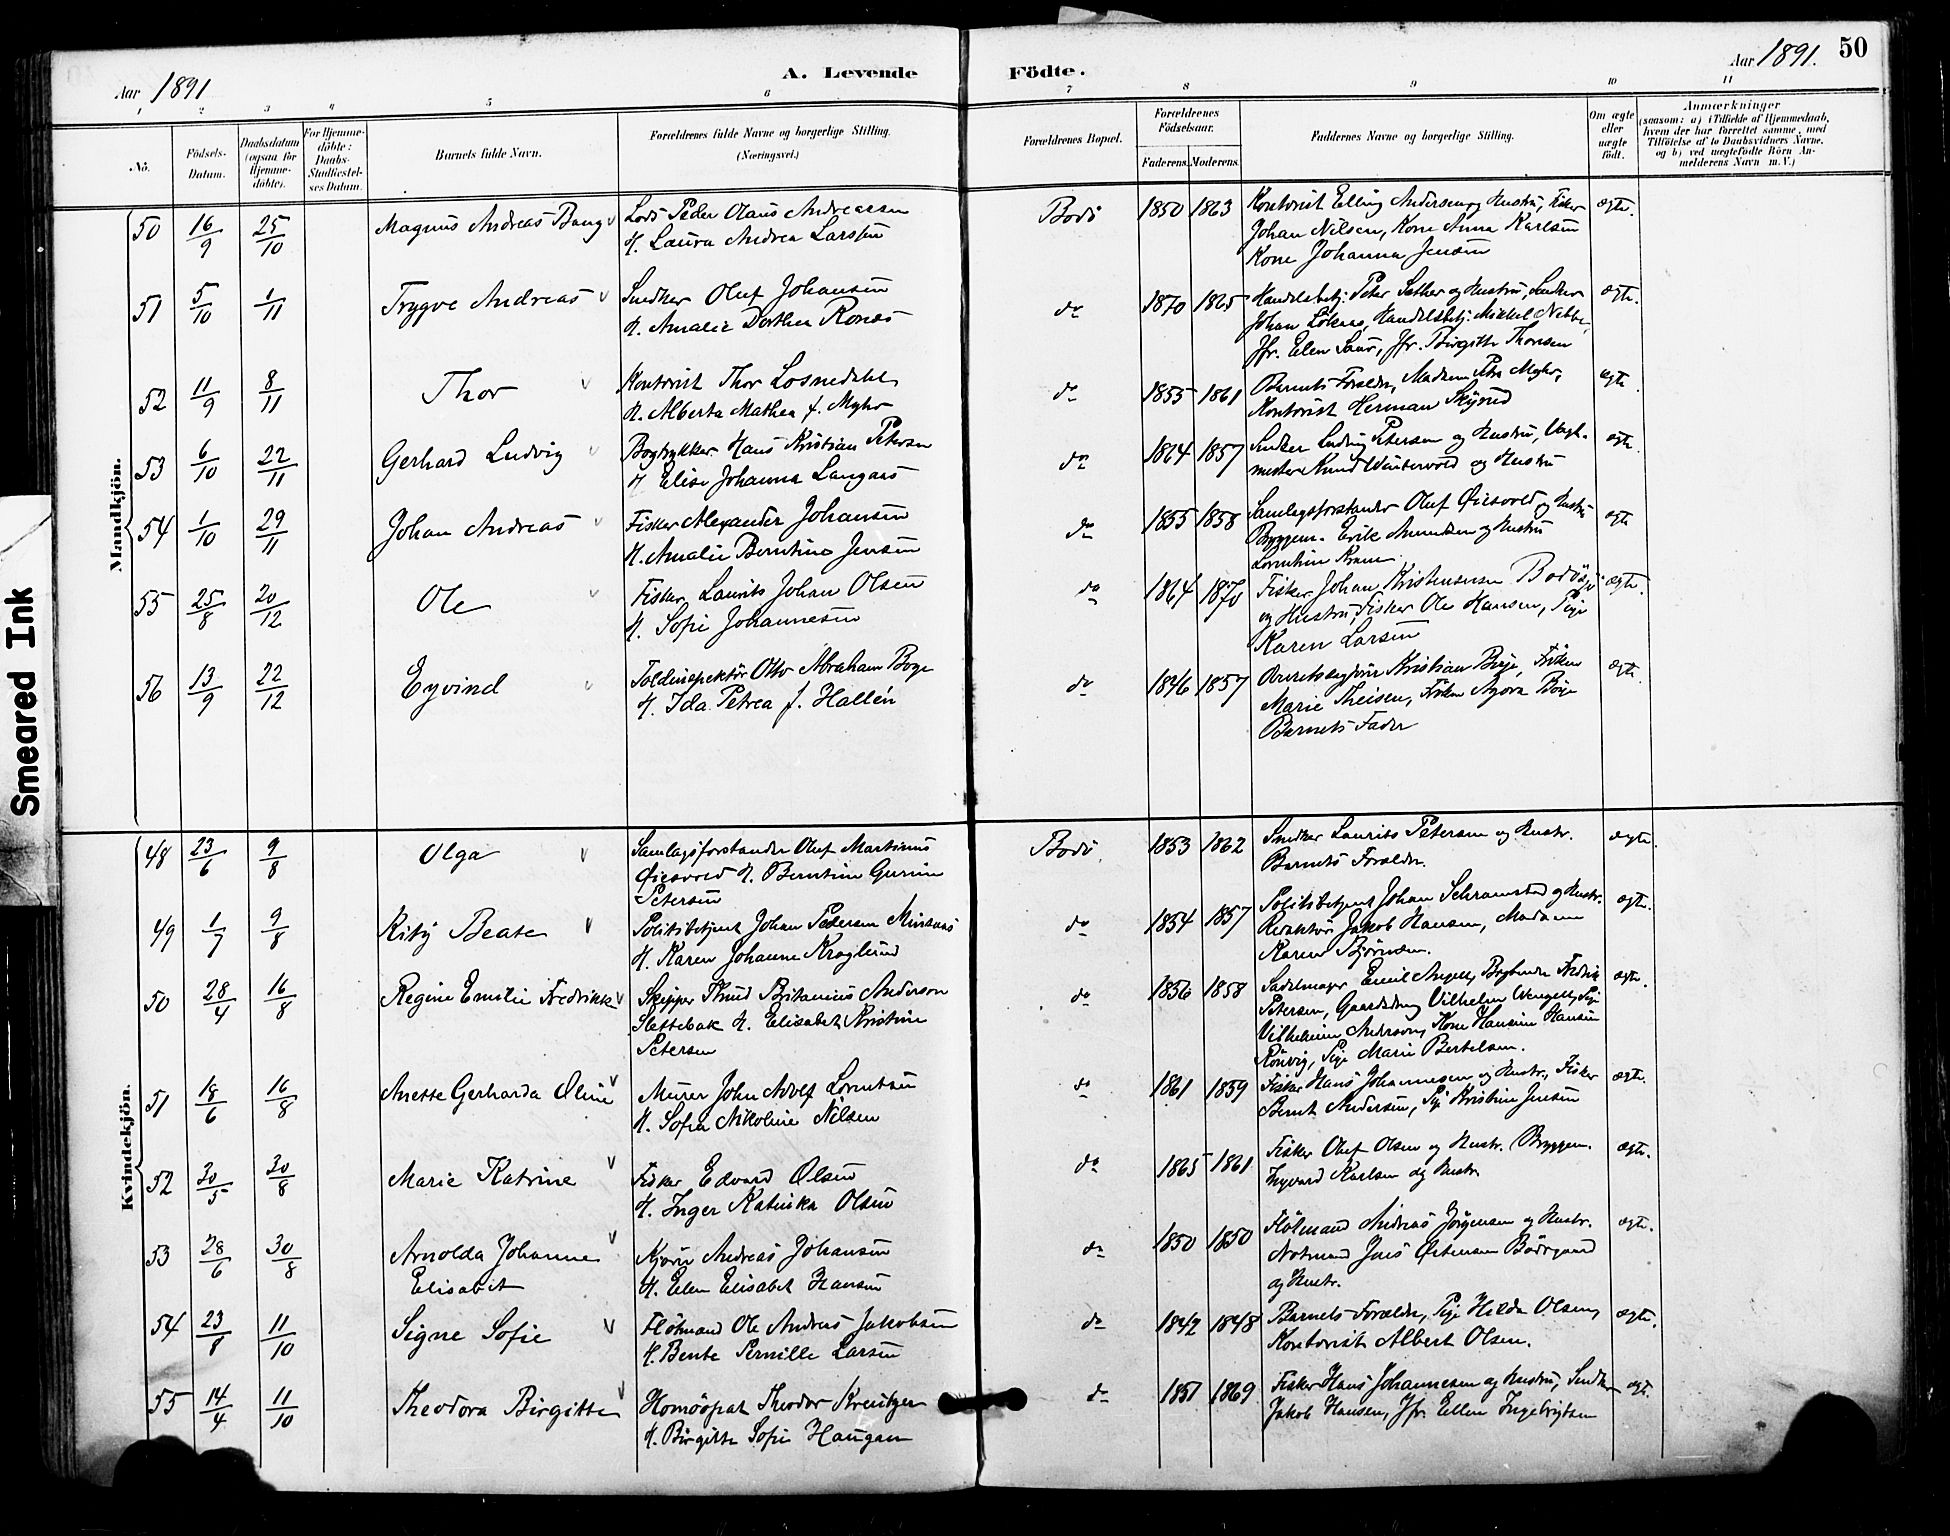 50
Aar 1891
A. Levende
Födte.
Aar 1891.
1 2 3 4 5 6 7 8 9 10 11
No.
Födsels-Datum.
Daabsdatum (ogsaa för Hjemme-döbte).
For Hjemme-döbte: Daabs-Stadfæstel-ses Datum.
Barnets fulde Navn.
Forældrenes fulde Navne og borgerlige Stilling. (Næringsvei.)
Forældrenes Bopæl.
Forældrenes Födselsaar.
Faderens. Moderens.
Faddernes Navne og borgerlige Stilling.
Om ægte eller uægte födt.
Anmærkninger
(saasom: a) i Tilfælde af Hjemmedaab, hvem der har forrettet samme, med Tilföielse af to Daabsvidners Navne, og b) ved uægtefödte Börn An-melderens Navn m. V.)
Smeared Ink
Mandkjön.
50 16/9 25/10 Magnus Andreas Bang Lods Peder Olaus Andreassen Bodö 1850 1863 Kontorist Elling Andersen og Hustru, Fisker ægte.
H. Laura Andrea Larsen Johan Nilsen, Kone Anna Karlsen
Kone Johanna Jensen
51 5/10 1/11 Trygve Andreas Snedker Oluf Johansen do 1870 1865 Handelsbetj. Peter Sæther og Hustru, Snedker ægte.
H. Amalie Dorthea Ronæs Johan Löknes, Handelsbetj. Mikkel Nebbe,
Jfr. Elen , Jfr. Birgitte Thonsen
52 11/9 8/11 Thor Kontorist Thor Losnedahl do 1855 1861 Barnets Forældre, Madam Myhr, ægte
H. Alberta Mathea f. Myhr Kontorist Herman
53 6/10 22/11 Gerhard Ludvig Bogtrykker Hans Kristian Petersen do 1864 1857 Snedker Ludvig Petersen og Hustru, Vagt- ægte.
H Elise Johanna Langaas mester Knud Wintervold og Hustru
54 1/10 29/11 Johan Andreas Fisker Alexander Johansen do 1855 1858 Samlagsforstander Oluf Öiesvold og Hustru ægte
H. Amalie Berntine Jensen Bryggem. Erik Amundsen og Hustru
55 25/8 20/12 Ole Fisker Laurits Johan Olsen do 1864 1870 Fisker Johan Kristensen ægte.
H. Sofie Johannesen og Hustru, Fisker Ole Hansen, Pige
Karen Larsen
56 13/9 22/12 Eyvind Toldinspektör Otto Abraham Boye do 1846 1857 Kristian Boye, Fröken ægte
H. Ida Petrea f. Hallén Marie Theisen, Fröken Boye
Barnets Fader
Kvindekjön.
48 23/6 9/8 Olga Samlagsforstander Oluf Martinus Bodö. 1853 1862 Snedker Laurits Petersen og Hustr. ægte.
Öiesvold H. Berntine Gurine Barnets Forældre.
Petersen
49 1/7 9/8 Kitty Beate Politibetjent Johan Pedersen do 1854 1857 Politibetjent Johan Schramstad og Hustr. ægte.
H. Karen Johanne Kroglund Redaktör Jakob Hansen, Madam
Karen Björnsen.
50 28/4 16/8 Regine Emilie Fredrikke Skipper Knud Britanius Anderson do 1856 1858 Sadelmager Emil Angell, Fredrik ægte.
Slettebak H. Elisabet Kristine Petersen, Gaardsdreng Vilhelm , Pige
Petersen Vilhelmine Anderson, Kone Hansine Hansen
Rönvig, Pige Marie Bertelsen.
51 18/6 16/8 Anette Gerharda Oline Murer John Adolf Lorentsen do 1861 1859 Fisker Hans Johannesen og Hustr., Fisker ægte.
H. Sofia Nikoline Nilsen Bernt Andersen, Pige Kristine Jensen
52 30/5 30/8 Marie Katrine Fisker Edvard Olsen do 1865 1861 Fisker Oluf Olsen og Hustr. Bryggem. ægte.
H. Inger Katinka Olsen Ingvard Karlsen og Hustr.
53 28/6 30/8 Arnolda Johanne Kjörer Andreas Johansen do 1850 1850 Flötmand Andreas Jörgensen og Hustr. ægte.
Elisabet H. Elen Elisabet Hansen Notmand Jens Östensen Bodögaard
og Hustr.
54 23/8 11/10 Signe Sofie Flötmand Ole Andreas Jakobsen do 1842 1848 Barnets Forældre, Pige Hilda Olsen, ægte.
H. Bente Pernille Larsen Kontorist Albert Olsen.
55 14/4 11/10 Theodora Birgitte Homöopat Theodor Kreutzer do 1851 1869 Fisker Hans Johannesen og Hustru, Snedker ægte.
H. Birgitte Sofie Haugan Jakob Hansen, Jfr. Ellen Ingebrigtsen